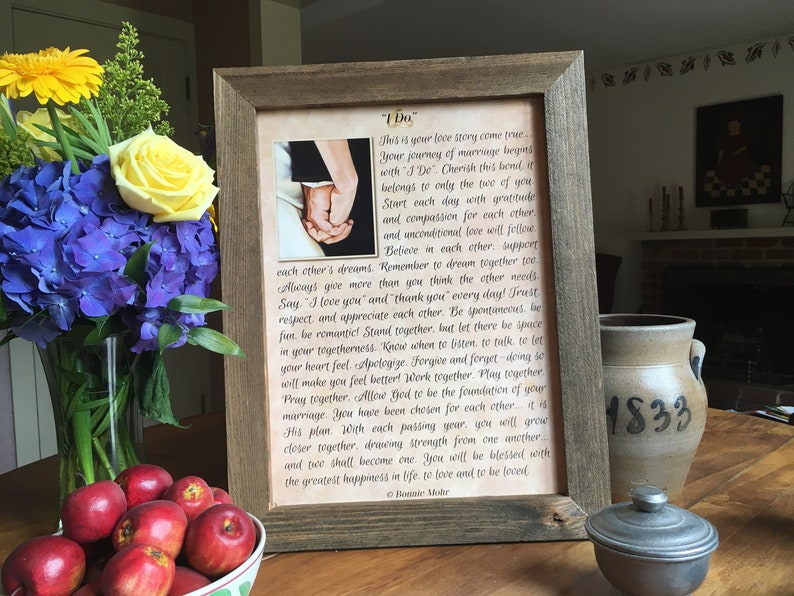 "I Do"
This is your love story come true...
Your journey of marriage begins
with "I Do". Cherish this bond, it
belongs to only the two of you.
Start each day with gratitude
and compassion for each other,
and unconditional love will follow.
Believe in each other; support
each other's dreams. Remember to dream together too.
Always give more than you think the other needs.
Say, "I love you" and "thank you" every day! Trust,
respect, and appreciate each other. Be spontaneous, be
fun, be romantic! Stand together, but let there be space
in your togetherness. Know when to listen, to talk, to let
your heart feel. Apologize. Forgive and forget—doing so
will make you feel better! Work together. Play together.
Pray together. Allow God to be the foundation of your
marriage. You have been chosen for each other... it is
His plan. With each passing year, you will grow
closer together, drawing strength from one another...
and two shall become one. You will be blessed with
the greatest happiness in life, to love and to be loved.
© Bonnie Mohr
1833